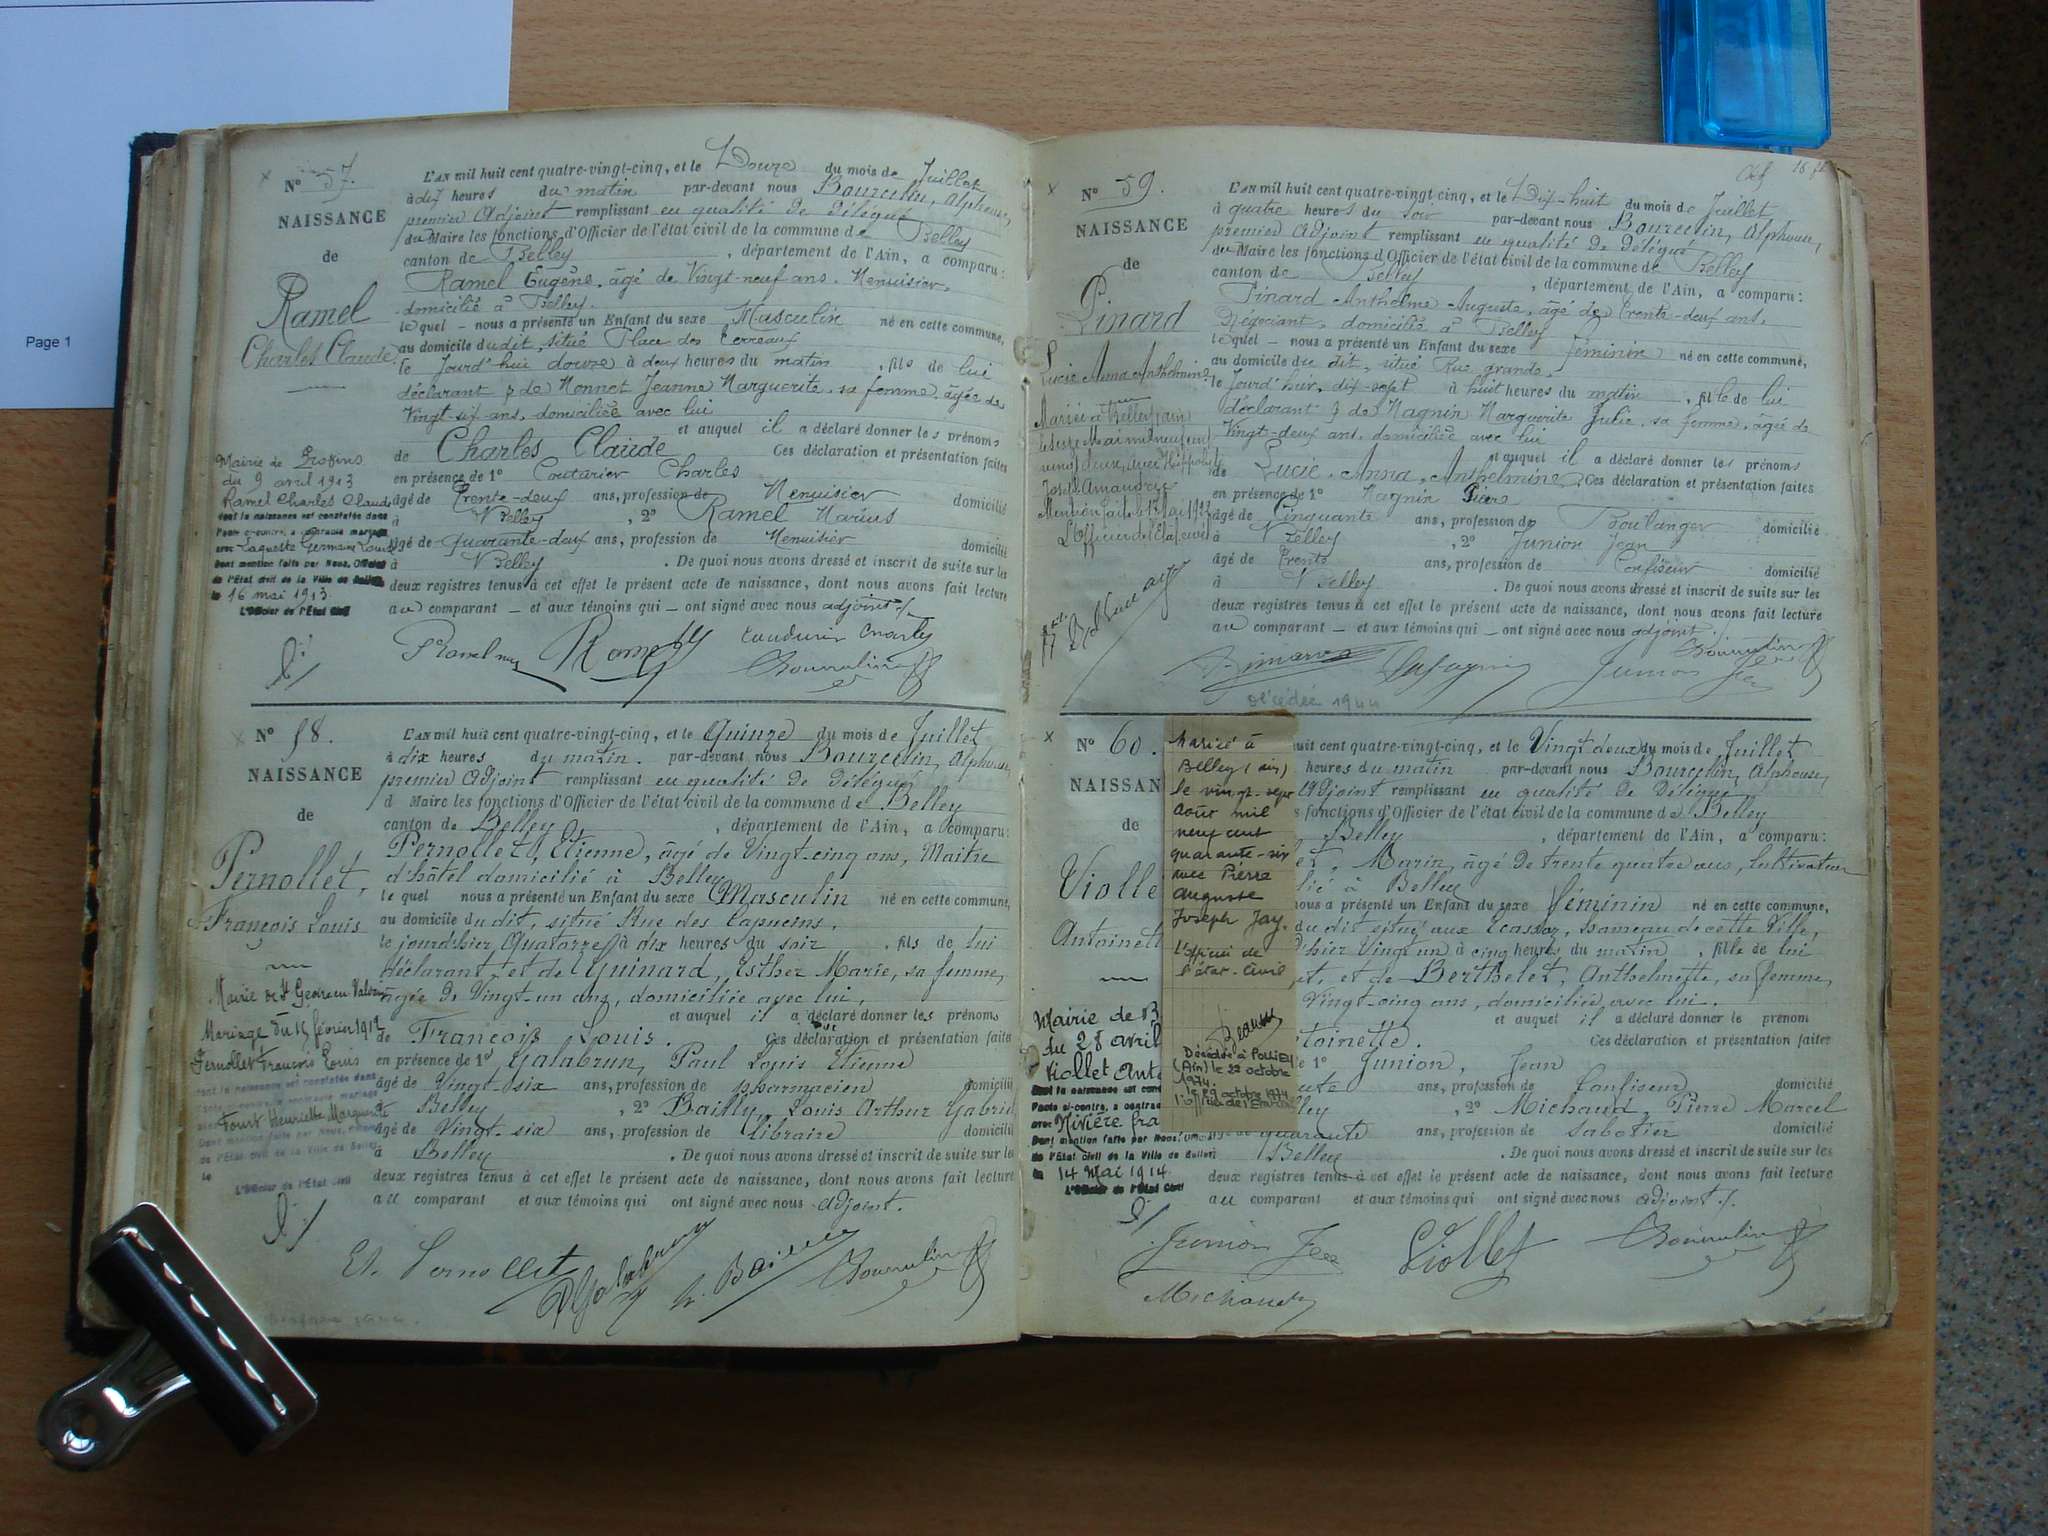 Page 1
N° 57.
NAISSANCE
de
Ramel
Charles Claude
L'an mil huit cent quatre-vingt-cinq, et le Douze du mois de Juillet
à dix heures du matin par-devant nous Bourcelin, Alphonse,
premier Adjoint remplissant en qualité de Délégué
du Maire les fonctions d'Officier de l'état civil de la commune de Belley
canton de Belley, département de l'Ain, a comparu:
Ramel Eugène, âgé de Vingt-neuf ans, Menuisier,
domicilié à Belley.
lequel – nous a présenté un Enfant du sexe Masculin né en cette commune,
au domicile dudit, situé Place des Terreaux
le Jourd'hui douze à deux heures du matin, fils de lui
déclarant & de Monnet Jeanne Marguerite, sa femme, âgée de
Vingt-six ans, domiciliée avec lui
et auquel il a déclaré donner les prénoms
de Charles Claude Ces déclaration et présentation faites
en présence de 1° Couturier Charles
âgé de Trente-deux ans, profession de Menuisier domicilié
à Belley, 2° Ramel Marius
âgé de Quarante-deux ans, profession de Menuisier domicilié
à Belley. De quoi nous avons dressé et inscrit de suite sur les
deux registres tenus à cet effet le présent acte de naissance, dont nous avons fait lecture
au comparant – et aux témoins qui – ont signé avec nous adjoint
Mairie de
du 9 avril 1913
Ramel Charles Claude
dont la naissance est constatée dans
l'acte ci-contre, a contracté mariage
avec Laquette Germaine
Dont mention faite par Nous, Officier
de l'État civil de la Ville de Belley
le 16 mai 1913.
L'Officier de l'État Civil
Bourcelin
N° 58.
NAISSANCE
de
Pernollet,
François Louis
L'an mil huit cent quatre-vingt-cinq, et le Quinze du mois de Juillet
à dix heures du matin. par-devant nous Bourcelin, Alphonse,
premier Adjoint remplissant en qualité de Délégué
d Maire les fonctions d'Officier de l'état civil de la commune de Belley
canton de Belley, département de l'Ain, a comparu:
Pernollet, Etienne, âgé de Vingt-cinq ans, Maître
d'hôtel domicilié à Belley
lequel nous a présenté un Enfant du sexe Masculin né en cette commune,
au domicile dudit, situé Rue des Capucins,
le jourd'hier Quatorze à dix heures du soir, fils de lui
déclarant, et de Guinard, Esther Marie, sa femme,
âgée de Vingt-un ans, domiciliée avec lui,
et auquel il a déclaré donner les prénoms
de François Louis. Ces déclaration et présentation faites
en présence de 1° Galabrun, Paul Louis Etienne
âgé de Vingt-six ans, profession de pharmacien domicilié
à Belley, 2° Bailly, Louis Arthur Gabriel
âgé de Vingt-six ans, profession de libraire domicilié
à Belley. De quoi nous avons dressé et inscrit de suite sur les
deux registres tenus à cet effet le présent acte de naissance, dont nous avons fait lecture
au comparant et aux témoins qui ont signé avec nous adjoint.
Mairie de St
Mariage du 15 février 1912
Pernollet François Louis
dont la naissance est constatée dans
l'acte ci-contre, a contracté mariage
avec Henriette Marguerite
Dont mention faite par Nous, Officier
de l'État civil de la Ville de Belley
le
L'Officier de l'État Civil
Et. Pernollet
Bourcelin
N° 59.
NAISSANCE
de
Pinard
Lucie Anna Anthelmine
L'an mil huit cent quatre-vingt-cinq, et le Dix-huit du mois de Juillet
à quatre heures du soir par-devant nous Bourcelin, Alphonse,
premier adjoint remplissant en qualité de Délégué
du Maire les fonctions d'Officier de l'état civil de la commune de Belley
canton de Belley, département de l'Ain, a comparu:
Pinard Anthelme Auguste, âgé de Trente-deux ans,
Négociant, domicilié à Belley
lequel – nous a présenté un Enfant du sexe féminin né en cette commune,
au domicile du dit, situé Rue grande,
le Jourd'hier, dix-sept à huit heures du matin, fille de lui
déclarant & de Magnin Marguerite Julie, sa femme, âgée de
Vingt-deux ans, domiciliée avec lui
et auquel il a déclaré donner les prénoms
de Lucie Anna Anthelmine. Ces déclaration et présentation faites
en présence de 1° Magnin Pierre
âgé de Cinquante ans, profession de Boulanger domicilié
à Belley, 2° Junion Jean
âgé de Trente ans, profession de Confiseur domicilié
à Belley. De quoi nous avons dressé et inscrit de suite sur les
deux registres tenus à cet effet le présent acte de naissance, dont nous avons fait lecture
au comparant – et aux témoins qui – ont signé avec nous adjoint.
Mariée à Belley, ain
Mai mil neuf cent
vingt deux, avec Hippolyte
L'Officier de l'Etat civil
Bourcelin
Décédée 1944
N° 60.
NAISSAN
de
Violle
Antoinett
huit cent quatre-vingt-cinq, et le Vingt deux du mois de Juillet
heures du matin par-devant nous Bourcelin, Alphonse,
Adjoint remplissant en qualité de Délégué
s fonctions d'Officier de l'état civil de la commune de Belley
Belley, département de l'Ain, a comparu:
et, Marin, âgé de trente quatre ans, Cultivateur
lié à Belley
nous a présenté un Enfant du sexe féminin né en cette commune,
du dit situé aux Ecassaz, hameau de cette Ville,
d'hier Vingt un à cinq heures du matin, fille de lui
et de Berthelet, Anthelmette, sa femme,
Vingt-cinq ans, domiciliée avec lui.
et auquel il a déclaré donner le prénom
toinette. Ces déclaration et présentation faites
de 1° Junion, Jean
ans, profession de Confiseur domicilié
lley, 2° Michaud, Pierre Marcel
quarante ans, profession de Sabotier domicilié
Belley. De quoi nous avons dressé et inscrit de suite sur les
deux registres tenus à cet effet le présent acte de naissance, dont nous avons fait lecture
au comparant et aux témoins qui ont signé avec nous adjoint.
Mariée à
Belley (ain)
le vingt-sept
août mil
neuf cent
quarante-six
avec Pierre
Auguste
Joseph Jay.
L'officier de
l'état-civil
Décédée à POLLIEU
(Ain) le 22 octobre
1974.
le 29 octobre 1974
Mairie de B
du 28 avril
Viollet Ant
dont la naissance est cons
l'acte ci-contre, a contrac
avec Rivière Fra
Dont mention faite par Nous,
de l'État civil de la Ville de Belley
le 14 Mai 1914.
L'Officier de l'État Civil
Junion
Viollet
Bourcelin
Michaud